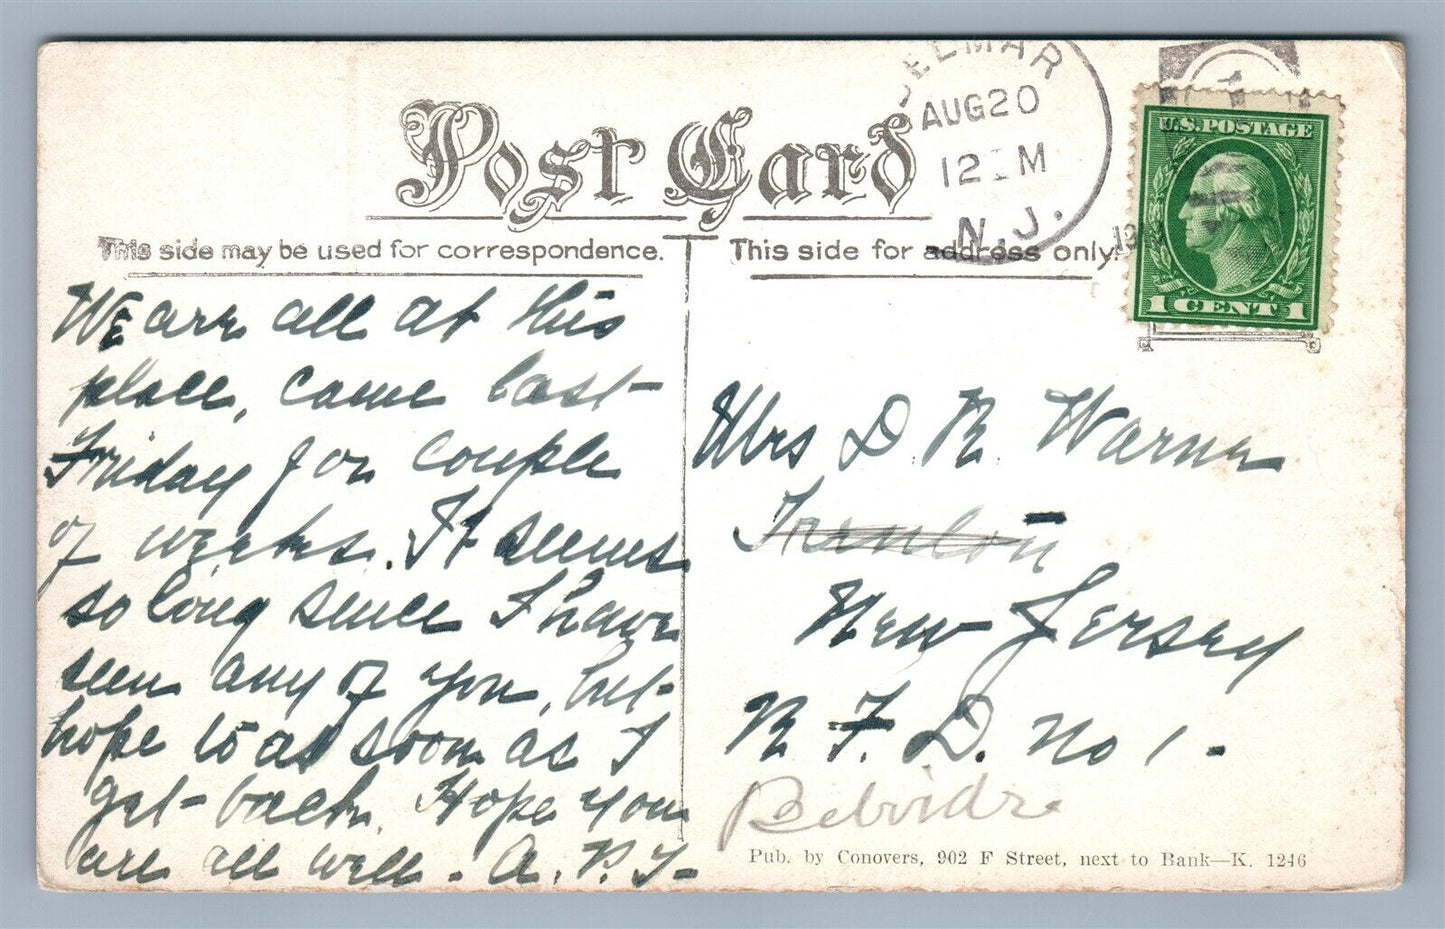 ELMAR
AUG 20
12 M
N.J.
U.S. POSTAGE
1 CENT 1
Post Card
This side may be used for correspondence.
This side for address only.
We are all at this
place, came last
Friday for couple
of weeks. It seems
so long since I have
seen any of you, but
hope to as soon as I
get back. Hope you
are all well. A. P. T.
Mrs D. R. Warner
Trenton
New Jersey
R. F. D. No 1.
Belvidre
Pub. by Conovers, 902 F Street, next to Bank—K. 1246